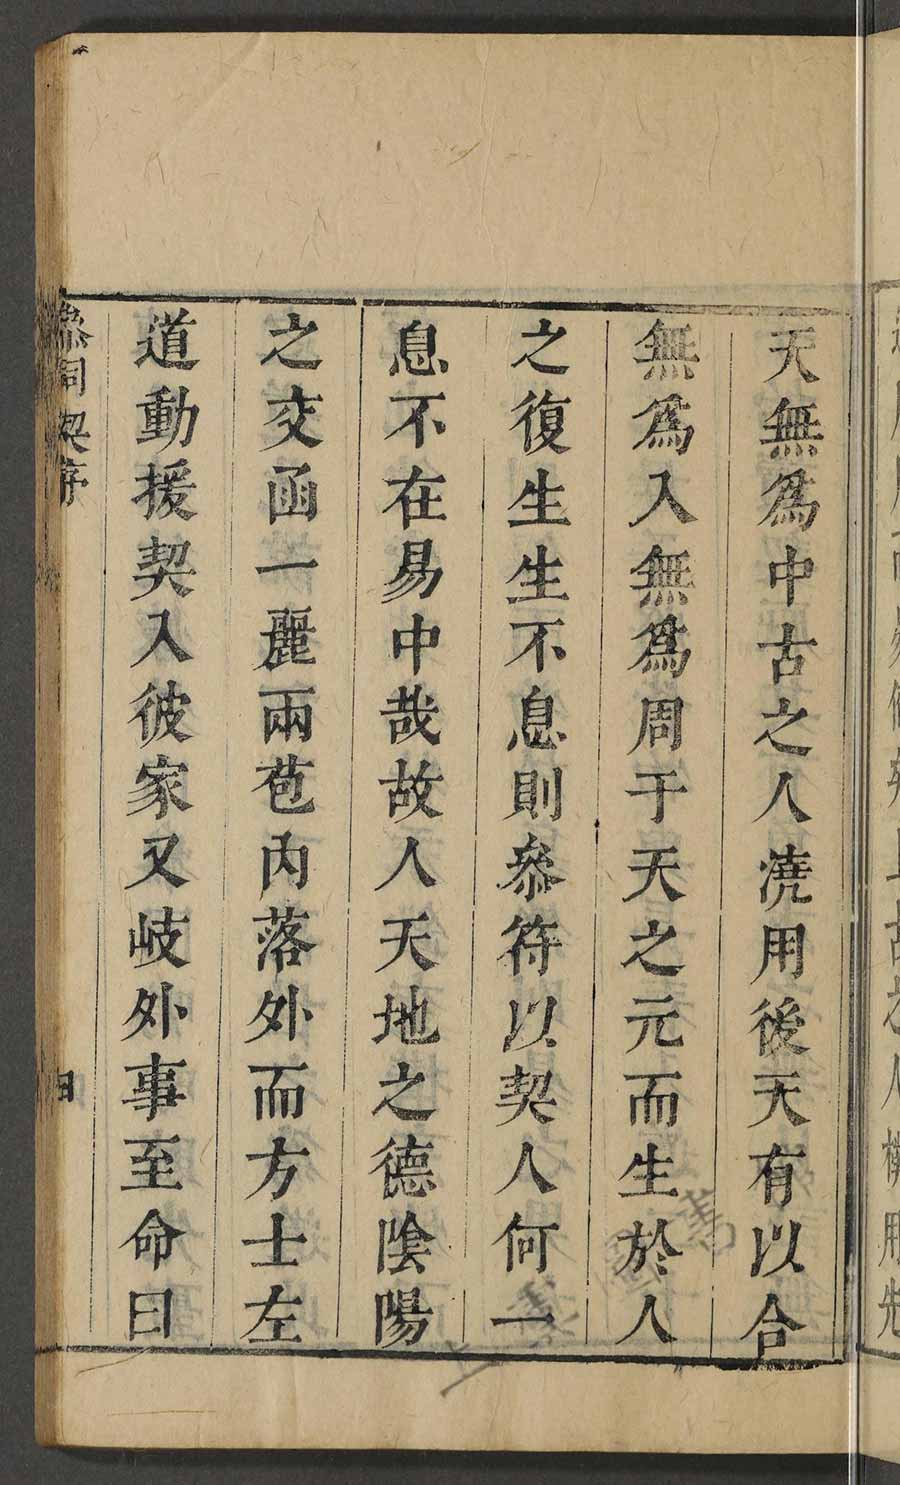 天無爲中古之人澆用後天有以合
無爲入無爲周于天之元而生於人
之復生生不息則叅符以契人何一
息不在易中哉故人天地之德陰陽
之交函一麗兩苞內落外而方士左
道動援契入彼家又岐外事至命曰
同契序